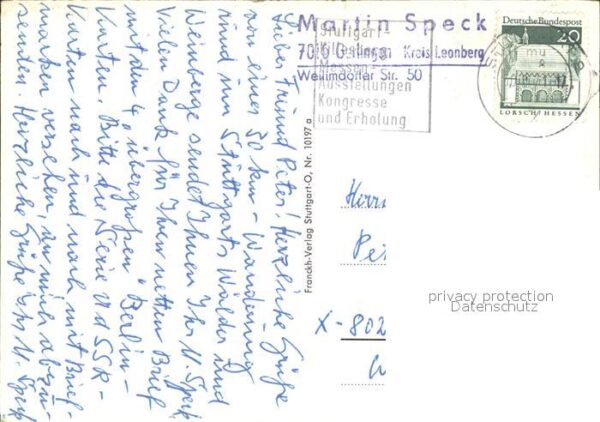 Martin Speck
7016 Gerlingen Kreis Leonberg
Weilimdorfer Str. 50
Stuttgart-
Messen
Ausstellungen
Kongresse
und Erholung
Deutsche Bundespost
20
LORSCH/HESSEN
Lieber Freund Peter! Herzliche Grüße
von einer 30 km-Wanderung
rund um Stuttgarts Wälder und
Weinberge sendet Ihnen Ihr M. Speck
Vielen Dank für Ihren netten Brief
mit den 4 übergroßen "Berlin-
Karten. Bitte die Serie UdSSR-
Karten nach und nach mit Brief-
marken versehen, an mich abzu-
senden. Herzliche Grüße Ihr M. Speck
Franckh-Verlag Stuttgart-O, Nr. 10197 a
Herrn
Pe
X-802
privacy protection
Datenschutz